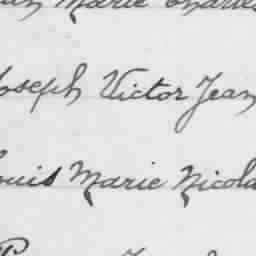 Marie Charles
Joseph Victor Jean
Louis Marie Nicola